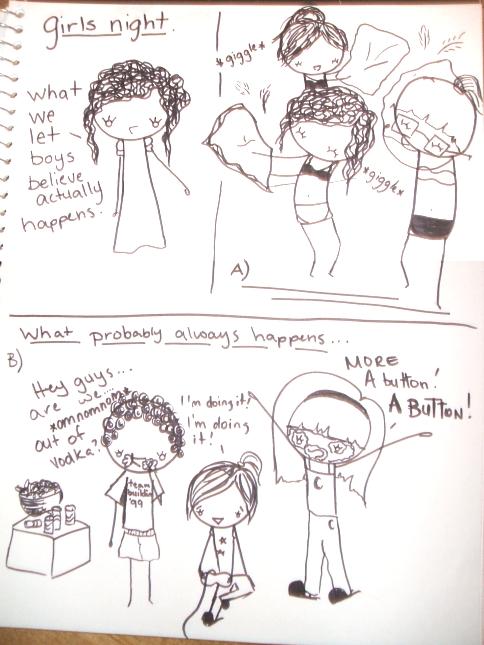 girls night.
what
we
let
boys
believe
actually
happens.
*giggle*
*giggle*
A)
What probably always happens...
B)
Hey guys...
are we...
*omnomnom*
out of
vodka?
team
building
'99
I'm doing it!
I'm doing
it!
MORE
A button!
A BUTTON!